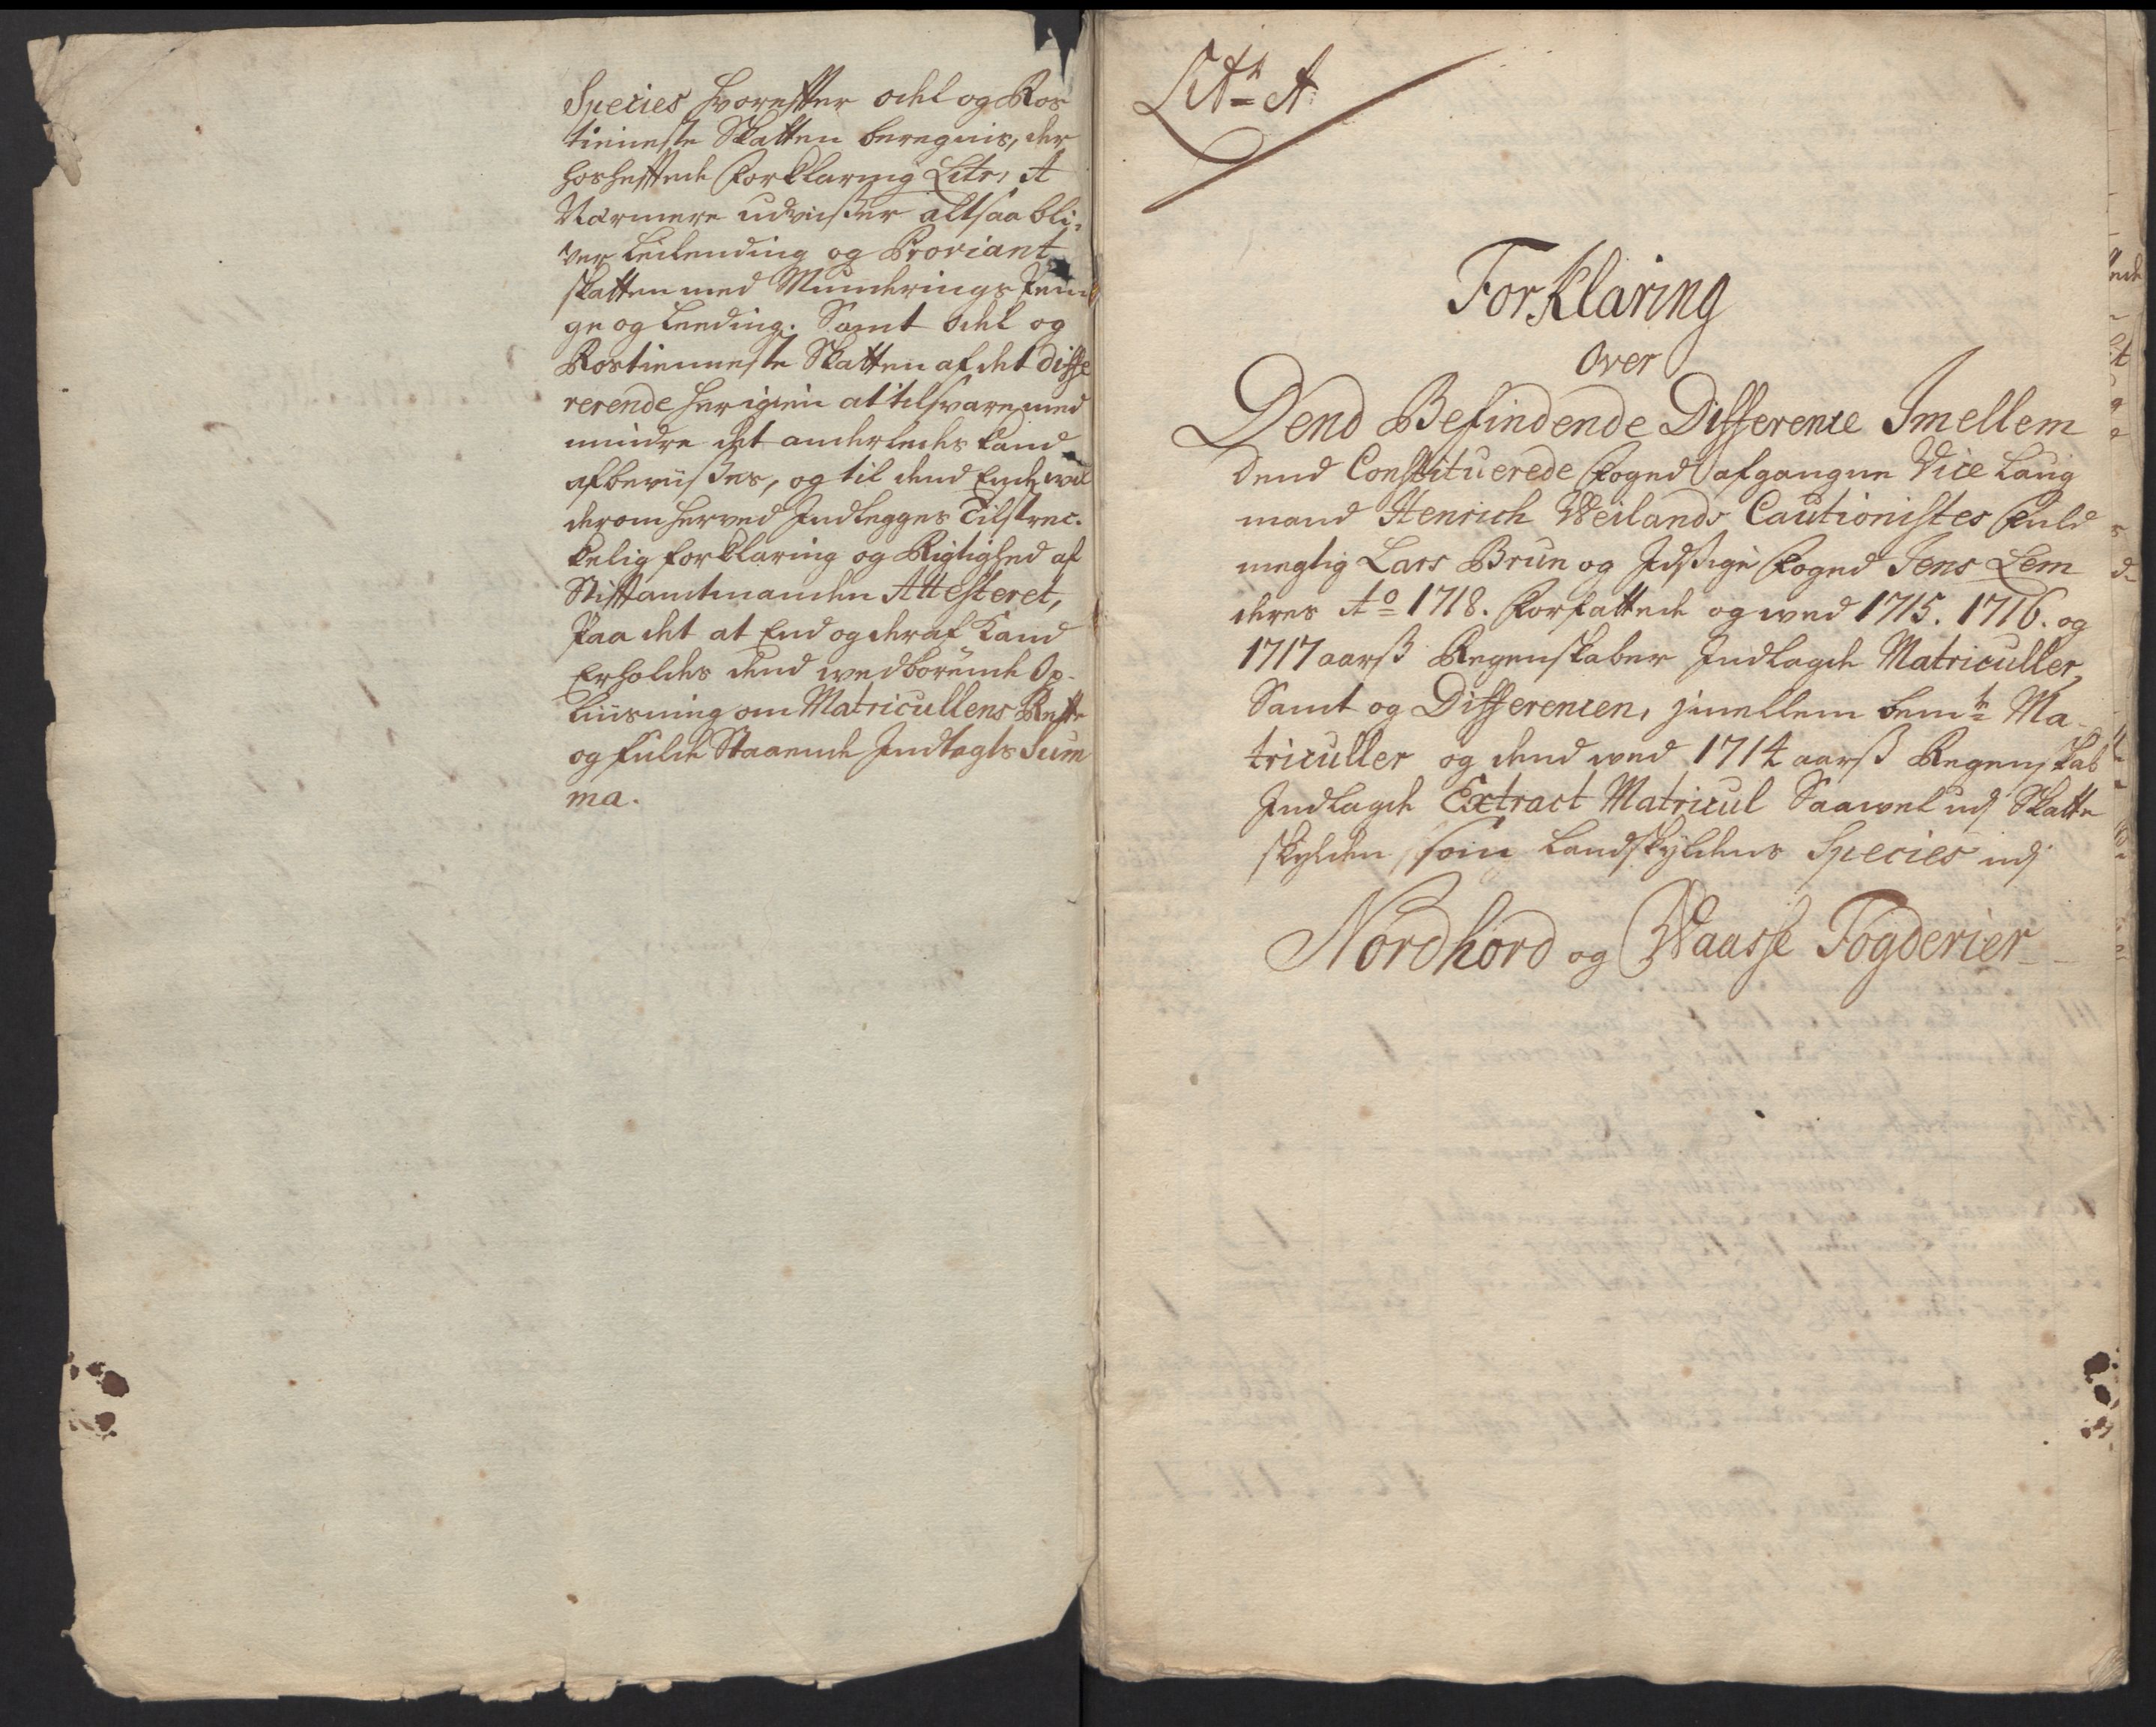 Species hvorefter odel og Ros
tieneste Skatten beregnis, der
hoshefftede Forklaring Litr: A
Nærmere udviiser altsaa bli-
ver Leilending og Proviant
skatten med Munderings Pen
ge og Leeding. Samt odel og
Rostienneste Skatten af det diffe
rerende her igien at tilsvare, med
mindre det anderledes kand
afbeviises, og til dend Ende vil
derom herved Indlegges Tilstrec-
kelig forklaring og Rigtighed af
Stifftamtmanden Attesteret,
Paa det at End og deraf kand
Erholdes dend vedbørende Op-
liusning om Matricullens Rette
og fulde Staaende Indtegts Sum
ma.
Litr A
Forklaring
Over
Dend Befindende Difference Imellem
Dend Constituerede Foged afgangne Vice Laug
mand Henrich Weilands Cautionistes Fuld
megtig Lars Brun og Idsige Foged Jens Lem
deres Ao 1718. Forfattede og ved 1715. 1716. og
1717 aarß Regenskaber Indlagde Matriculler,
Samt og Differencen, imellem bemte Ma-
triculler og dend ved 1714 aarß Regenskab
Indlagde Extract Matricul Saavel udj Skatte
skylden som Landskyldens Species udj
Nordhord og Waasse Fogderier